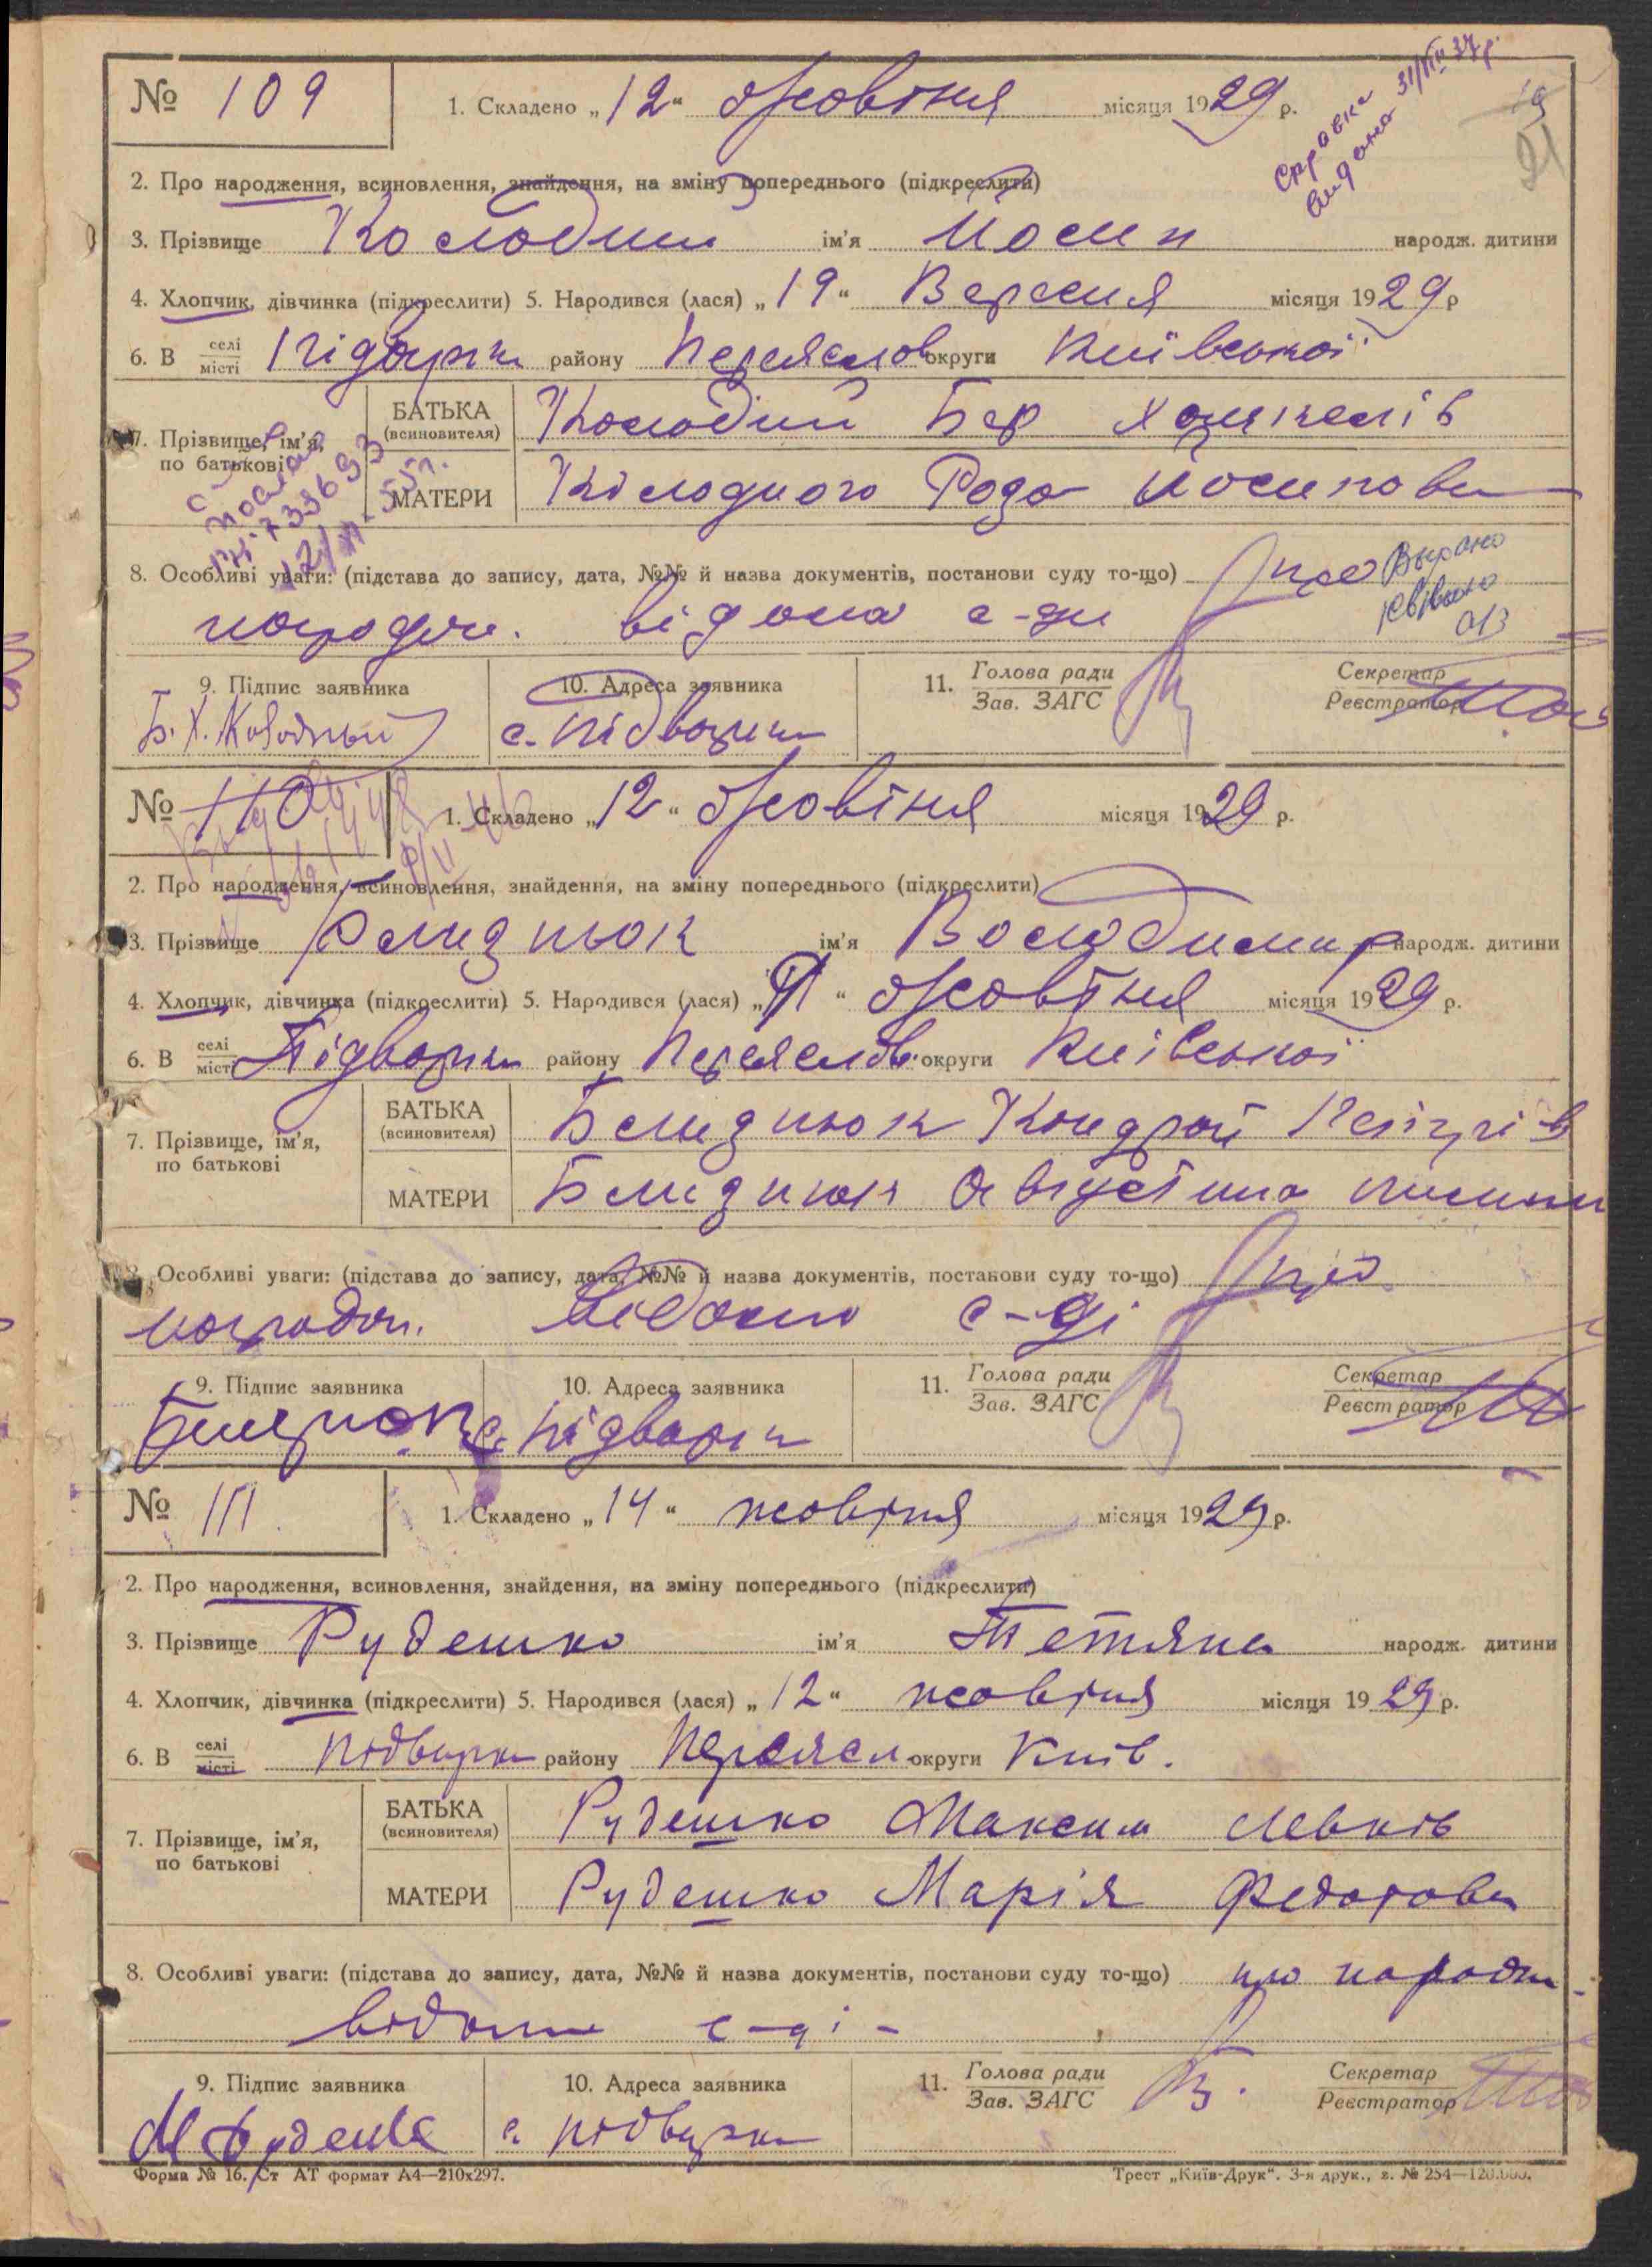 № 109 1. Складено „12“ жовтня місяця 1929 р.
Справка видана 31/VII 37 р.
2. Про народження, всиновлення, знайдення, на зміну попереднього (підкреслити)
3. Прізвище Колодний ім'я Йосип народж. дитини
4. Хлопчик, дівчинка (підкреслити) 5. Народився (лася) „19“ Вересня місяця 1929 р
6. В селі місті Підварки району Переяслов округи Київської
7. Прізвище, ім'я, по батькові
БАТЬКА (всиновителя) Колодний Бер
МАТЕРИ Колодного Роза Йосипова
8. Особливі уваги: (підстава до запису, дата, №№ й назва документів, постанови суду то-що) про
народж. відома с-ди
9. Підпис заявника 10. Адреса заявника 11. Голова ради Зав. ЗАГС Секретар Реєстратор
Б. Х. Колодный с. Підварки
№ 110 1. Складено „12“ жовтня місяця 1929 р.
2. Про народження, всиновлення, знайдення, на зміну попереднього (підкреслити)
3. Прізвище ім'я Володимир народж. дитини
4. Хлопчик, дівчинка (підкреслити) 5. Народився (лася) „ “ жовтня місяця 1929 р.
6. В селі місті Підварки району Переяслов. округи Київської
7. Прізвище, ім'я, по батькові
БАТЬКА (всиновителя) Кондрат
МАТЕРИ Августина
8. Особливі уваги: (підстава до запису, дата, №№ й назва документів, постанови суду то-що) про
народж. відомо с-ді
9. Підпис заявника 10. Адреса заявника 11. Голова ради Зав. ЗАГС Секретар Реєстратор
с. Підварки
№ 111 1. Складено „14“ жовтня місяця 1929 р.
2. Про народження, всиновлення, знайдення, на зміну попереднього (підкреслити)
3. Прізвище Рудешко ім'я Тетяна народж. дитини
4. Хлопчик, дівчинка (підкреслити) 5. Народився (лася) „12“ жовтня місяця 1929 р.
6. В селі місті Підварки району Переясл округи Київ.
7. Прізвище, ім'я, по батькові
БАТЬКА (всиновителя) Рудешко Максим Левків
МАТЕРИ Рудешко Марія Федотова
8. Особливі уваги: (підстава до запису, дата, №№ й назва документів, постанови суду то-що) про народж
відомо с-ді -
9. Підпис заявника 10. Адреса заявника 11. Голова ради Зав. ЗАГС Секретар Реєстратор
с. Підварки
Форма № 16. Ст АТ формат А4—210х297. Трест „Київ-Друк“. 3-я друк., з. № 254—120.000.